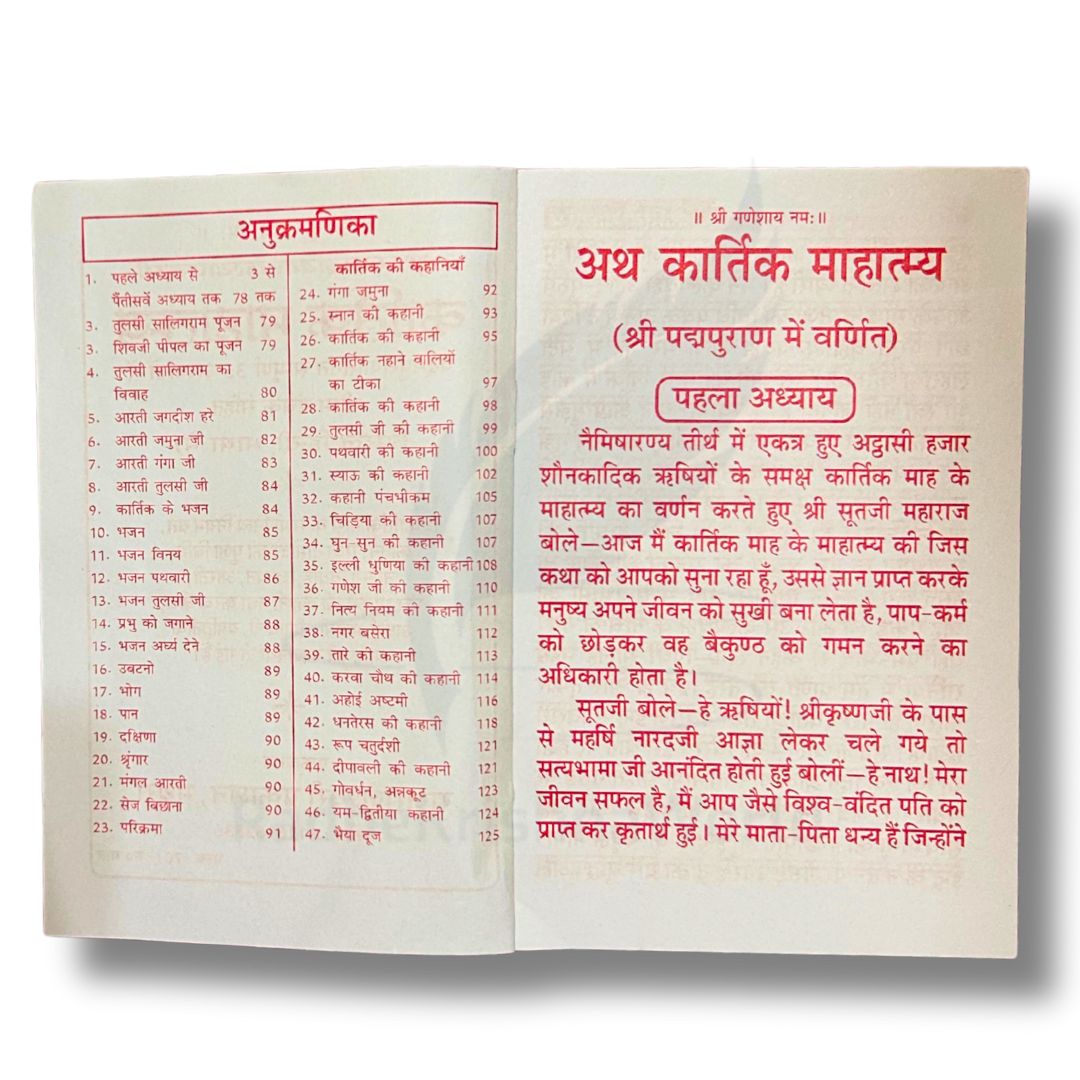 अनुक्रमणिका
1. पहले अध्याय से 3 से
पैंतीसवें अध्याय तक 78 तक
3. तुलसी सालिगराम पूजन 79
3. शिवजी पीपल का पूजन 79
4. तुलसी सालिगराम का
विवाह 80
5. आरती जगदीश हरे 81
6. आरती जमुना जी 82
7. आरती गंगा जी 83
8. आरती तुलसी जी 84
9. कार्तिक के भजन 84
10. भजन 85
11. भजन विनय 85
12. भजन पथवारी 86
13. भजन तुलसी जी 87
14. प्रभु को जगाने 88
15. भजन अर्घ्य देने 88
16. उबटनो 89
17. भोग 89
18. पान 89
19. दक्षिणा 90
20. श्रृंगार 90
21. मंगल आरती 90
22. सेज बिछाना 90
23. परिक्रमा 91
कार्तिक की कहानियाँ
24. गंगा जमुना 92
25. स्नान की कहानी 93
26. कार्तिक की कहानी 95
27. कार्तिक नहाने वालियों
का टीका 97
28. कार्तिक की कहानी 98
29. तुलसी जी की कहानी 99
30. पथवारी की कहानी 100
31. स्याऊ की कहानी 102
32. कहानी पंचभीकम 105
33. चिड़िया की कहानी 107
34. घुन-सुन की कहानी 107
35. इल्ली धुणिया की कहानी 108
36. गणेश जी की कहानी 110
37. नित्य नियम की कहानी 111
38. नगर बसेरा 112
39. तारे की कहानी 113
40. करवा चौथ की कहानी 114
41. अहोई अष्टमी 116
42. धनतेरस की कहानी 118
43. रूप चतुर्दशी 121
44. दीपावली की कहानी 121
45. गोवर्धन, अन्नकूट 123
46. यम-द्वितीया कहानी 124
47. भैया दूज 125
॥ श्री गणेशाय नमः॥
अथ कार्तिक माहात्म्य
(श्री पद्मपुराण में वर्णित)
पहला अध्याय
नैमिषारण्य तीर्थ में एकत्र हुए अट्ठासी हजार
शौनकादिक ऋषियों के समक्ष कार्तिक माह के
माहात्म्य का वर्णन करते हुए श्री सूतजी महाराज
बोले—आज मैं कार्तिक माह के माहात्म्य की जिस
कथा को आपको सुना रहा हूँ, उससे ज्ञान प्राप्त करके
मनुष्य अपने जीवन को सुखी बना लेता है, पाप-कर्म
को छोड़कर वह बैकुण्ठ को गमन करने का
अधिकारी होता है।
सूतजी बोले—हे ऋषियों! श्रीकृष्णजी के पास
से महर्षि नारदजी आज्ञा लेकर चले गये तो
सत्यभामा जी आनंदित होती हुई बोलीं—हे नाथ! मेरा
जीवन सफल है, मैं आप जैसे विश्व-वंदित पति को
प्राप्त कर कृतार्थ हुई। मेरे माता-पिता धन्य हैं जिन्होंने